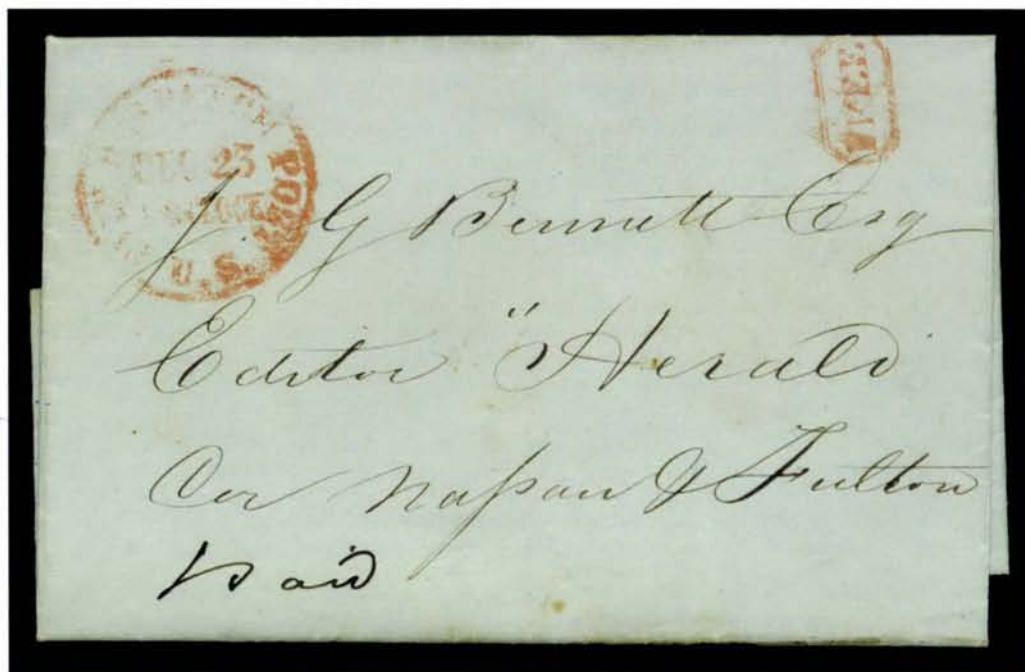 U.S.
23
FREE
J. G Bennett Esq
Editor "Herald
Cor Nassau & Fulton
Paid